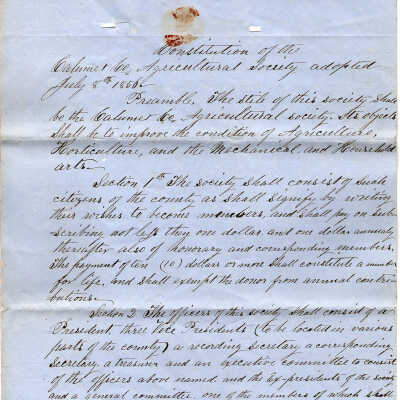 Constitution of the
Calumet Co, Agricultural Society adopted
July 8th 1860.
Preamble, The stile of this society shall
be the Calumet Co, Agricultural society. Its objects
shall be to improve the condition of Agriculture,
Horticulture, and the Mechanical, and Household
arts—
Section 1st The society shall consist of such
citizens of the county as shall signify by writing
their wishes to become members, and shall pay on sub-
scribing not less then one dollar and one dollar annualy
thereafter also of honorary and corresponding members.
The payment of ten (10) dollars or more shall constitute a member
for life, and shall exempt the donor from annual contri-
butions—
Section 2 The officers of this society shall consist of a
President, three Vice Presidents (to be located in various
parts of the county) a recording secretary a corresponding
secretary, a treasurer and an executive committee to consist
of the officers above named and the Ex-presidents of the society
and a general committee, one of the members of which shall